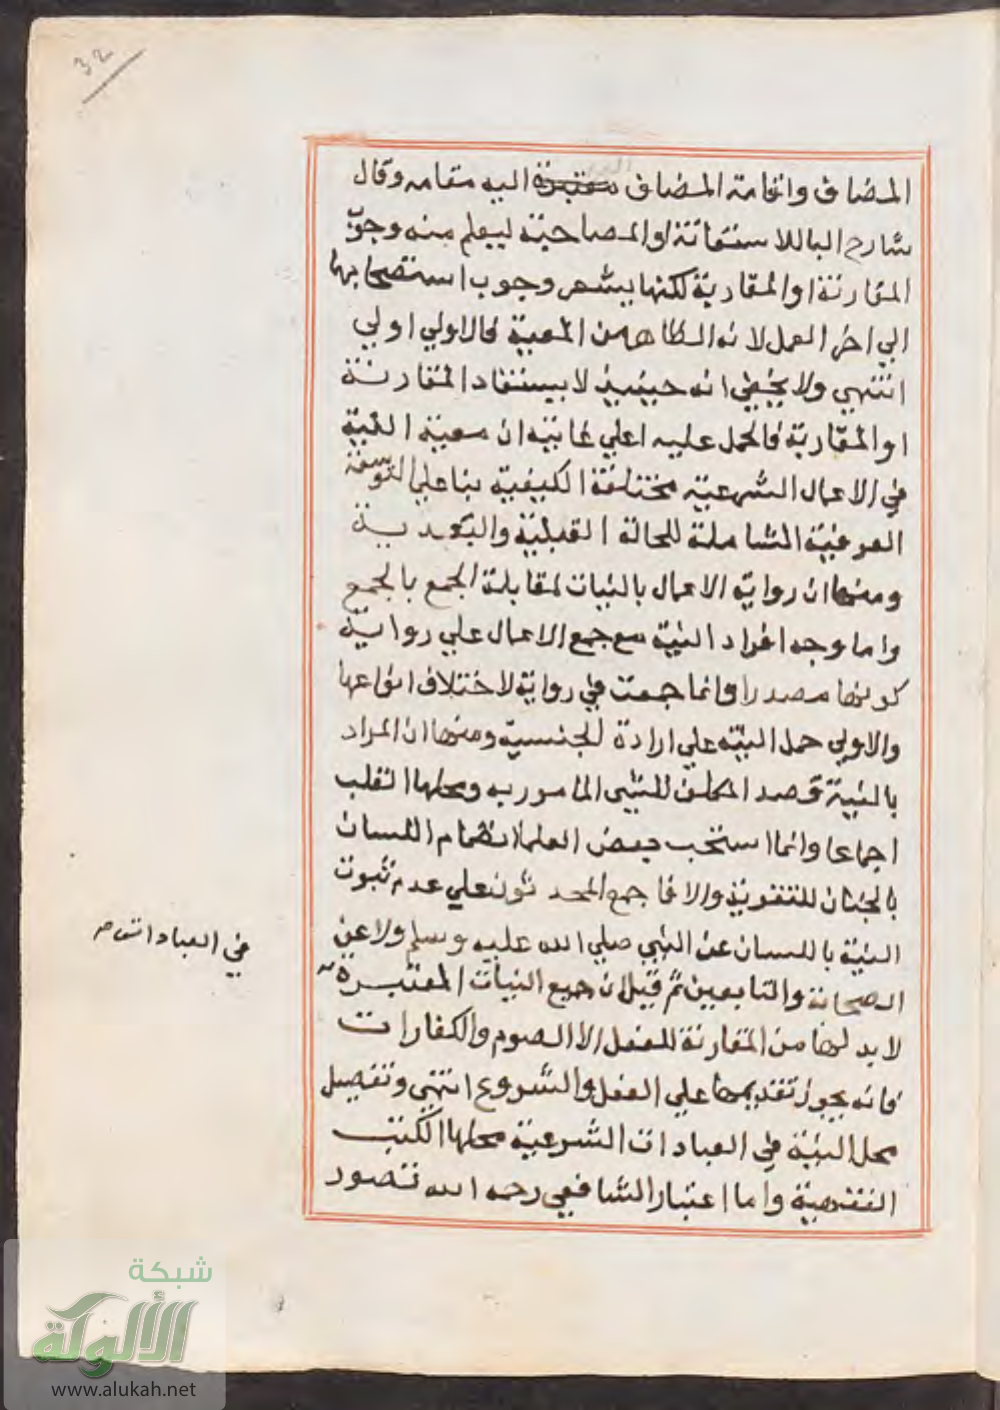 32
المضاف واقامة المضاف اليه مقامه وقال
شارح الباللاستعانة او المصاحبة ليعلم منه وجوب
المقارنة او المقاربة لكنها يشعر وجوب استصحابها
الي اخر العمل لانه الظاهر من المعية فالاولي اولي
انتهي ولا يخفي انه حينيذ لا يستفاد المقارنة
او المقاربة فالحمل عليه اعلي غايته ان معية النية
في الاعمال الشرعية مختلفة الكيفية بنا علي التوسعة
العرفية الشاملة للحالة القبلية والبعدية
ومنها ان رواية الاعمال بالنيات لمقابلة الجمع بالجمع
واما وجه افراد النية مع جمع الاعمال علي رواية
كونها مصدرا وانما جمعت في رواية لاختلاف انواعها
والاولي حمل النية علي ارادة الجنسية ومنها ان المراد
بالنية قصد المكلف للشي المامور به ومحلها القلب
اجماعا وانما استحب بعض العلما انضمام اللسان
بالجنان للتقوية والا فاجمع المحدثون علي عدم ثبوت
النية باللسان عن النبي صلي الله عليه وسلم ولا عن
الصحابة والتابعين ثم قيل ان جميع النيات المعتبرة
لابد لها من المقارنة للفعل الا الصوم والكفارات
فانه يجوز تقديمها علي الفعل والشروع انتهي وتفصيل
محل النية في العبادات الشرعية محلها الكتب
الفقهية واما اعتبار الشافعي رحمه الله تصور
في العبادات صح
شبكة
الألوكة
www.alukah.net